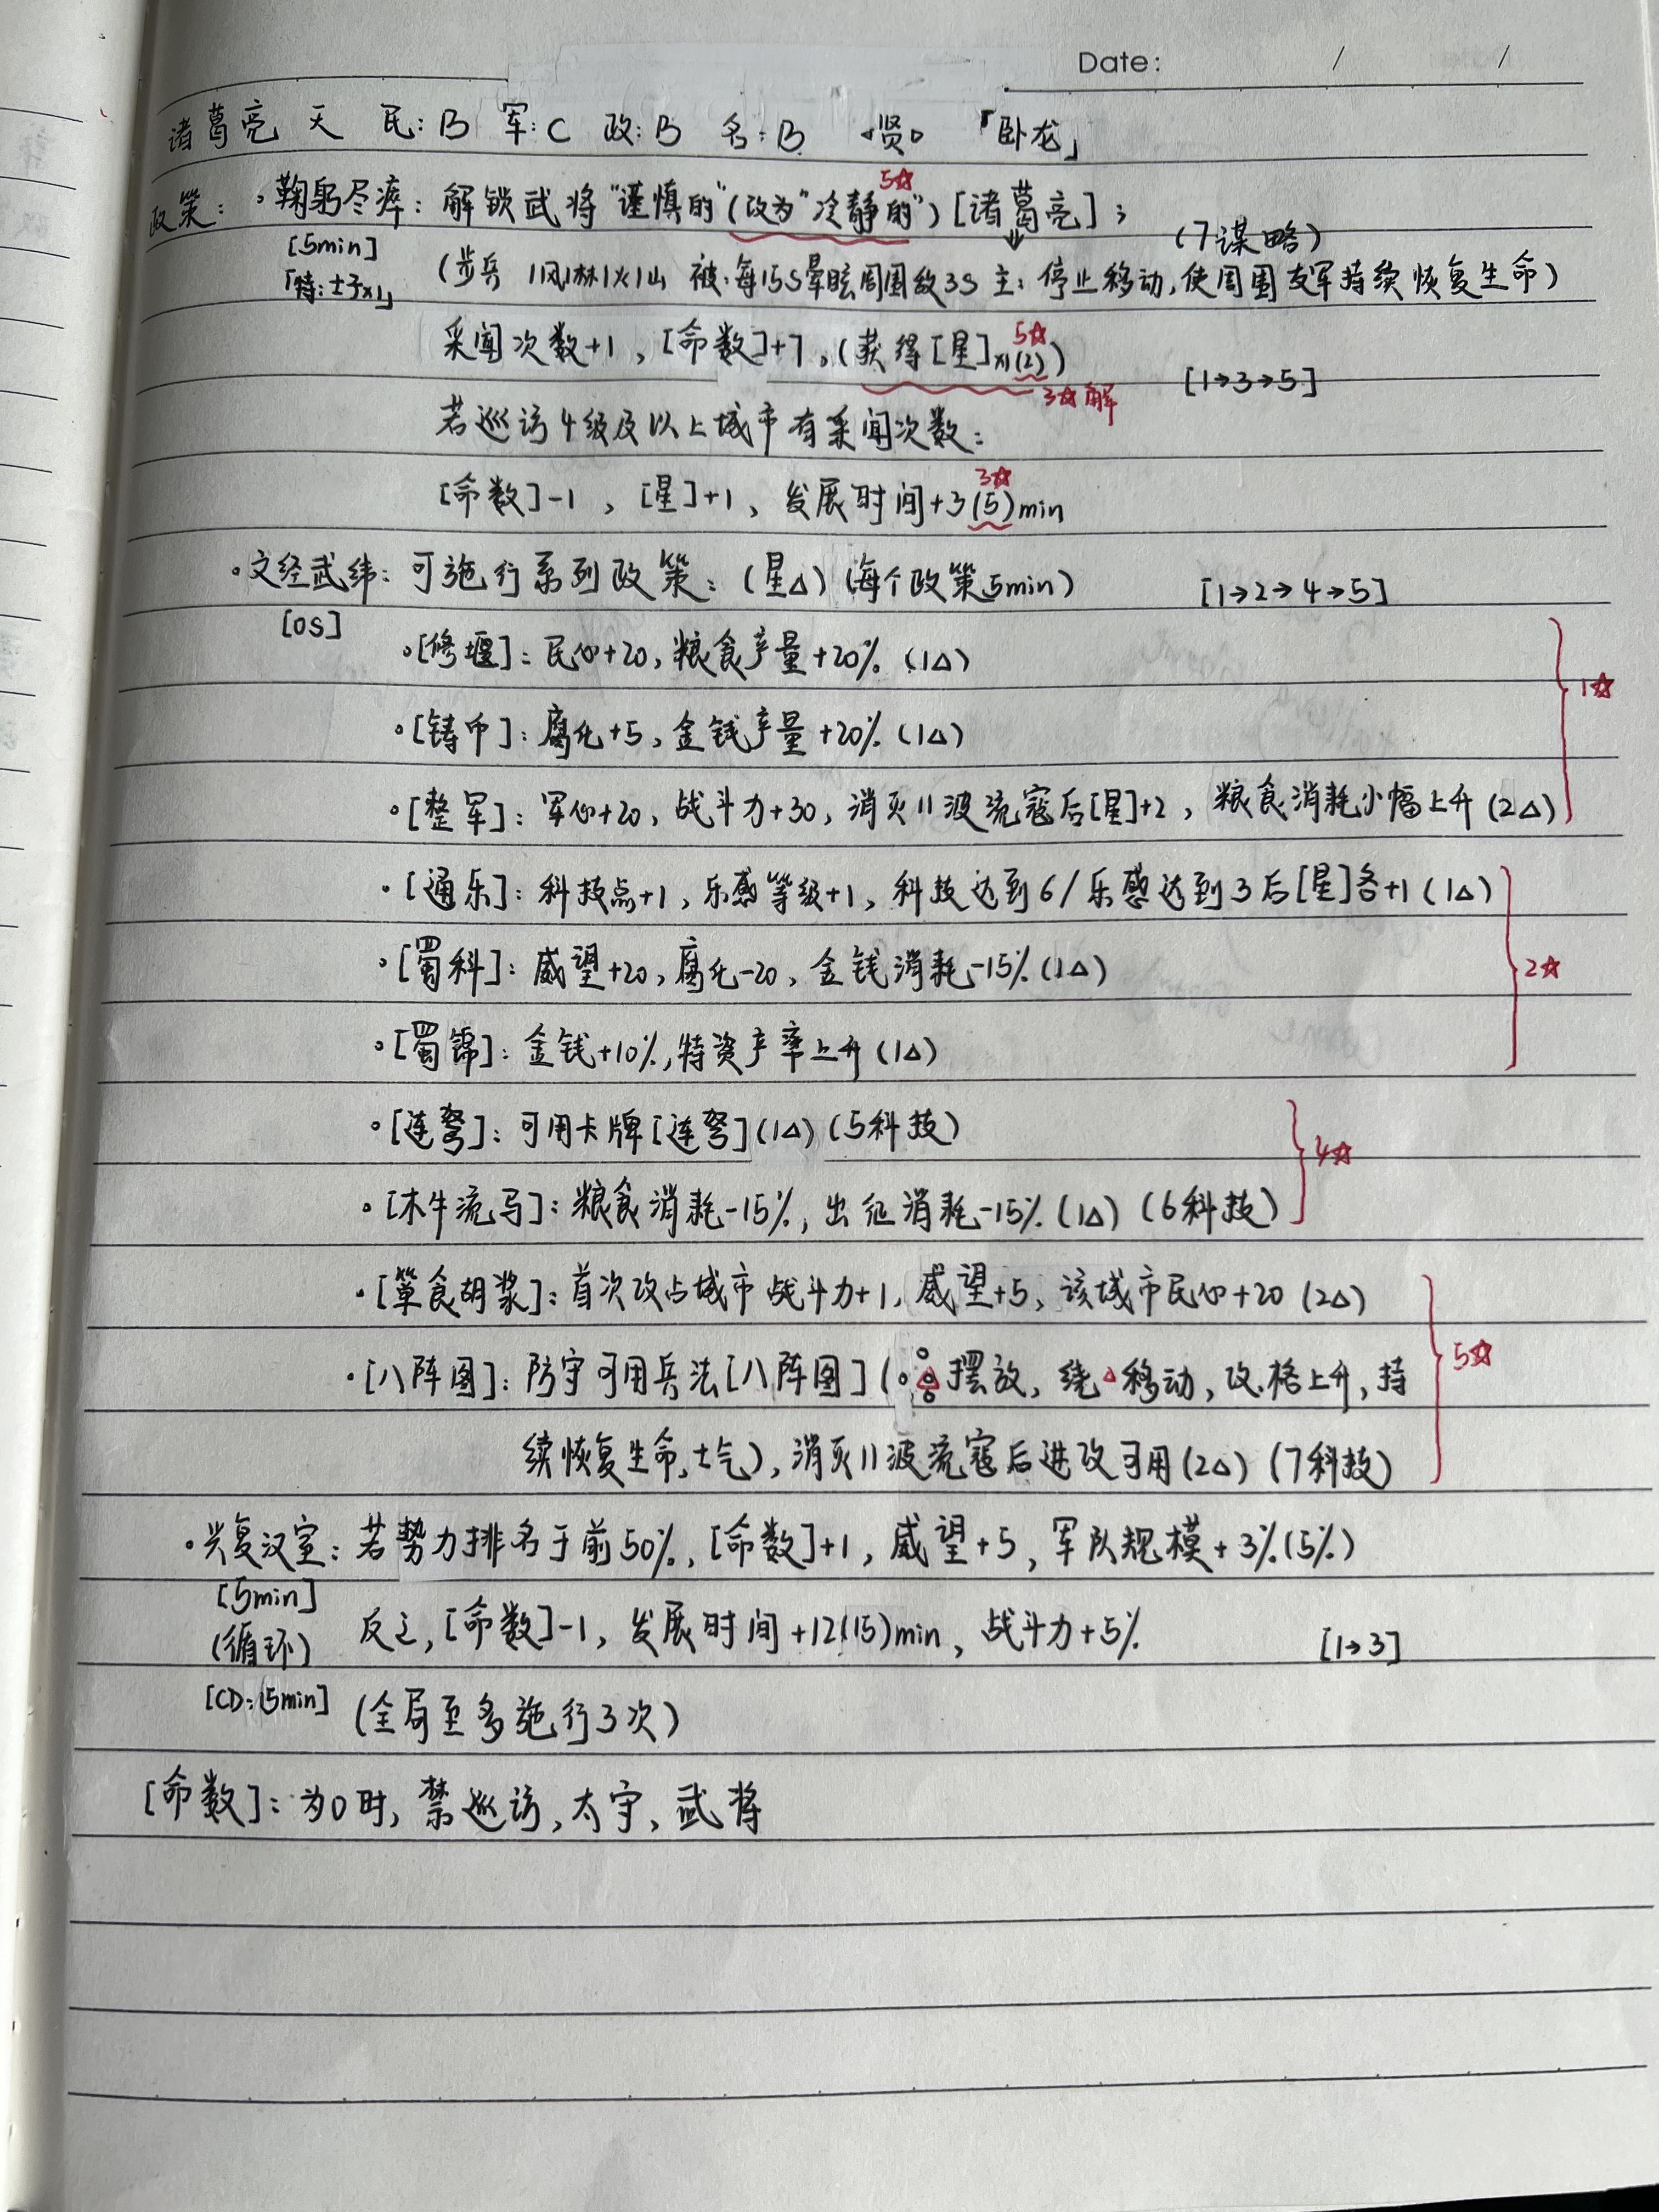 Date: / /
诸葛亮 天 民:B 军:C 政:B 名:B <贤> 「卧龙」
5☆
政策: 。鞠躬尽瘁: 解锁武将"谨慎的"(改为"冷静的")[诸葛亮];
[5min] ↓ (7谋略)
「特:士子x1」 (步兵 1风1林1火1山 被:每15S晕眩周围敌3S 主:停止移动,使周围友军持续恢复生命)
5☆
采闻次数+1,[命数]+7。(获得[星]x1(2)) [1→3→5]
3☆解
若巡访4级及以上城市有采闻次数:
3☆
[命数]-1,[星]+1,发展时间+3(5)min
·文经武纬: 可施行系列政策:(星△)(每个政策5min) [1→2→4→5]
[0S]
·[修堰]: 民心+20,粮食产量+20%(1△)
1☆
·[铸币]: 腐化+5,金钱产量+20%(1△)
·[整军]: 军心+20,战斗力+30,消灭11波流寇后[星]+2,粮食消耗小幅上升(2△)
·[通乐]: 科技点+1,乐感等级+1,科技达到6/乐感达到3后[星]各+1(1△)
·[蜀科]: 威望+20,腐化-20,金钱消耗-15%(1△) 2☆
·[蜀锦]: 金钱+10%,特资产率上升(1△)
·[连弩]: 可用卡牌[连弩](1△)(5科技)
4☆
·[木牛流马]: 粮食消耗-15%,出征消耗-15%(1△)(6科技)
·[箪食胡浆]: 首次攻占城市战斗力+1,威望+5,该城市民心+20(2△)
·[八阵图]: 防守可用兵法[八阵图](△摆放,绕△移动,攻.格上升,持 5☆
续恢复生命,士气),消灭11波流寇后进攻可用(2△)(7科技)
·兴复汉室: 若势力排名于前50%,[命数]+1,威望+5,军队规模+3%(5%)
[5min]
(循环) 反之,[命数]-1,发展时间+12(15)min,战斗力+5% [1→3]
[CD:15min] (全局至多施行3次)
[命数]: 为0时,禁巡访,太守,武将